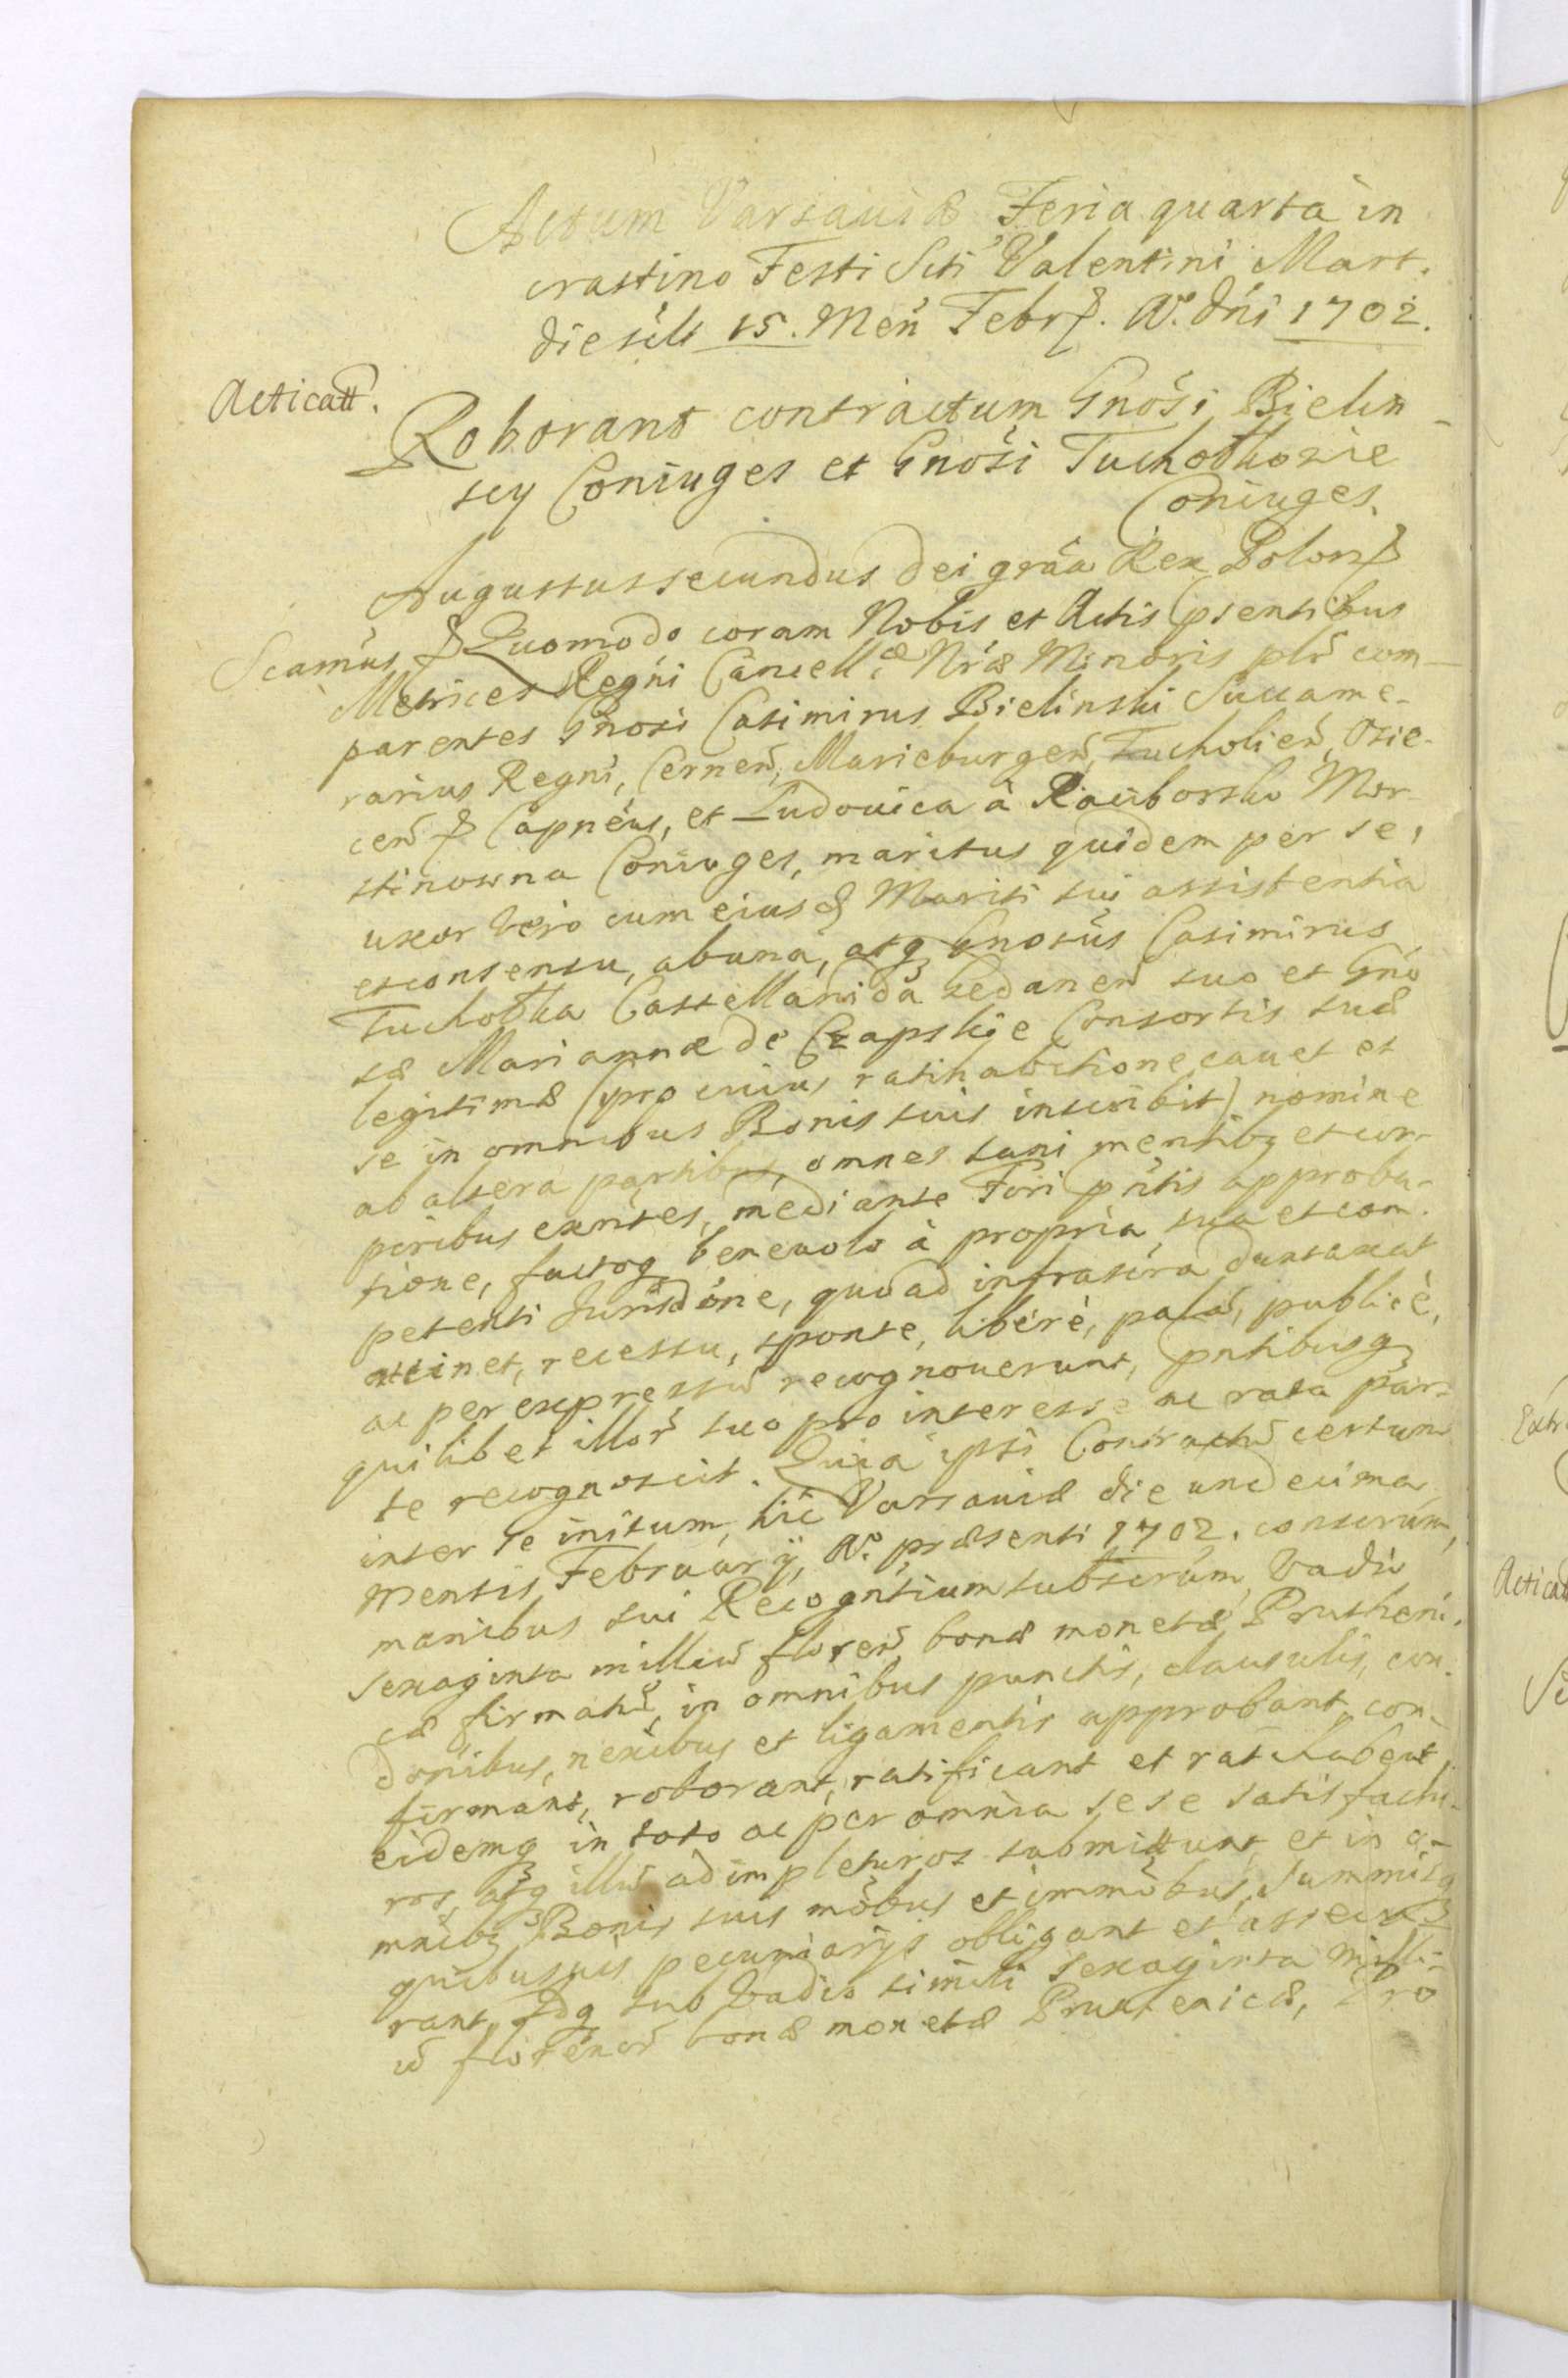 Actum Varsaviæ Feria quarta in
crastino Festi Scti Valentini Mart.
die scilt 15. Men Febr. Aº. dni 1702.
Acticatt.
Roborant contractum Gnosi Bielin-
scy Coniuges et Gnosi Tuchołkowie
Coniuges.
Augustus secundus Dei graa Rex Polon
Scamus Quomodo coram Nobis et Actis psentibus
Metrices Regni Cancell Nræ Minoris plr com-
parentes Gnosi Casimirus Bielinski Succame-
rarius Regni, Cernen, Marieburgen, Tucholien, Osie-
cen Capneus, et Ludovica à Raciborsko Mor-
stinowna Coniuges, maritus quidem per se,
uxor vero cum eiusd Mariti sui assistentia
et consensu, ab una, atq Gnosus Casimirus
Tuchołka Castellanida Gedanen suo et Gno
sæ Mariannæ de Czapskie Consortis suæ
legitimæ (pro cuius ratihabitione cavet et
se in omnibus Bonis suis inscribit) nomine
ab altera partibus, omnes sani mentibq et cor-
poribus exntes, mediante Fori pntis approba-
tione, factoq benevolo à propria sua et com-
petenti Jurisdone, quoad infrascra duntaxat
attinet, recessu, sponte, liberè, pala, publicè,
ac per expressu recognoverunt, pntibusq
quilibet illor suo pro interesse ac rata par-
te recognoscit. Quia ipsi Contractu certum
inter se initum, hic Varsaviæ die undecima
Mensis February, Aº. præsenti 1702. conscrum,
manibus sui Recogntium subscrum, vadio
sexaginta milliu floren bonæ monetæ Prutheni-
cæ firmatu, in omnibus punctis, clausulis, con-
donibus, nexibus et ligamentis approbant, con-
firmant, roborant, ratificant et ratihabent,
eidemq in toto ac per omnia sese satisfactu-
ros, atq illud adimpleturos submittunt, et in o-
mnibq Bonis suis mobus et immobus, summisq
quibusvis pecuniarÿs obligant et assecu-
rant, Idq sub vadio simili sexaginta milli-
u florenor bonæ monetæ Prutenicæ, Pro